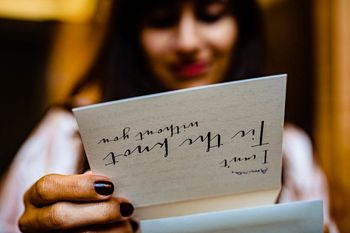 Amara,
I can't
Tie the knot
without you